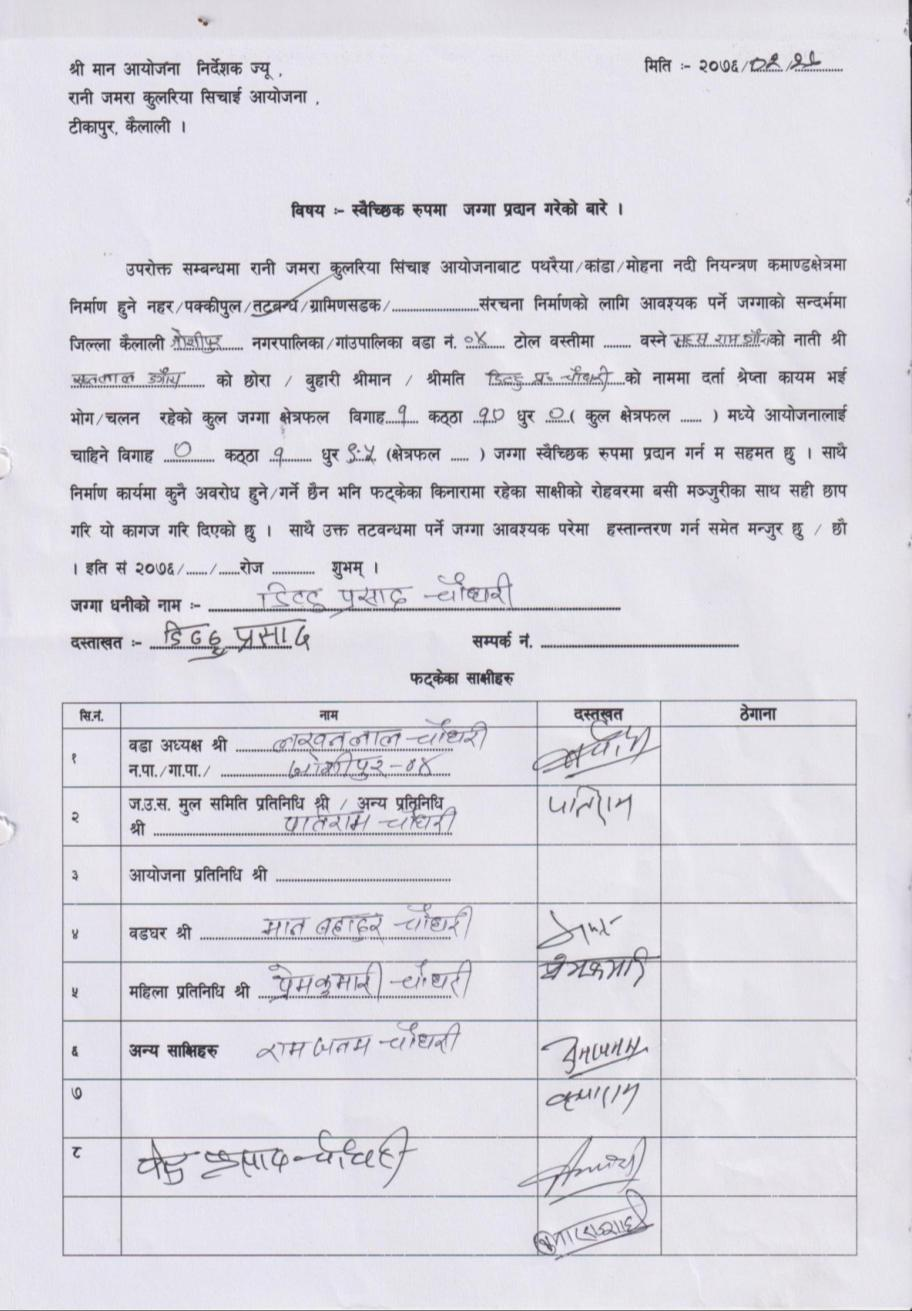 श्री मान आयोजना निर्देशक ज्यू ,
मिति :- २०७६/०२/२८
रानी जमरा कुलरिया सिचाई आयोजना ,
टीकापुर, कैलाली ।
विषय :- स्वैच्छिक रुपमा जग्गा प्रदान गरेको बारे ।
उपरोक्त सम्बन्धमा रानी जमरा कुलरिया सिंचाइ आयोजनाबाट पथरैया/कांडा/मोहना नदी नियन्त्रण कमाण्डक्षेत्रमा
निर्माण हुने नहर/पक्कीपुल/तटबन्ध/ग्रामिणसडक/....................संरचना निर्माणको लागि आवश्यक पर्ने जग्गाको सन्दर्भमा
जिल्ला कैलाली जोशीपुर नगरपालिका/गांउपालिका वडा नं. ०४ टोल वस्तीमा ........ वस्ने राम को नाती श्री
को छोरा / बुहारी श्रीमान / श्रीमति डिल्लु प्र. चौधरी को नाममा दर्ता श्रेप्ता कायम भई
भोग/चलन रहेको कुल जग्गा क्षेत्रफल विगाह १ कठ्ठा १० धुर ० ( कुल क्षेत्रफल ...... ) मध्ये आयोजनालाई
चाहिने विगाह ० कठ्ठा १ धुर ९.५ (क्षेत्रफल ..... ) जग्गा स्वैच्छिक रुपमा प्रदान गर्न म सहमत छु । साथै
निर्माण कार्यमा कुनै अवरोध हुने/गर्ने छैन भनि फट्केका किनारामा रहेका साक्षीको रोहवरमा बसी मञ्जुरीका साथ सही छाप
गरि यो कागज गरि दिएको छु । साथै उक्त तटबन्धमा पर्ने जग्गा आवश्यक परेमा हस्तान्तरण गर्न समेत मन्जुर छु / छौ
। इति सं २०७६/....../......रोज ............ शुभम् ।
जग्गा धनीको नाम :- डिल्लु प्रसाद चौधरी
दस्ताखत :- डिल्लु प्रसाद सम्पर्क नं. ........................
फट्केका साक्षीहरु
सि.नं. नाम दस्तखत ठेगाना
१ वडा अध्यक्ष श्री लखनलाल चौधरी
न.पा./गा.पा./ जोशीपुर-०४
२ ज.उ.स. मुल समिति प्रतिनिधि श्री / अन्य प्रतिनिधि
श्री पातिराम चौधरी पातिराम
३ आयोजना प्रतिनिधि श्री ........................
४ वडघर श्री मान बहादुर चौधरी
५ महिला प्रतिनिधि श्री प्रेमकुमारी चौधरी प्रेमकुमारी
६ अन्य साक्षिहरु राम जनम चौधरी
७
८ प्रसाद चौधरी